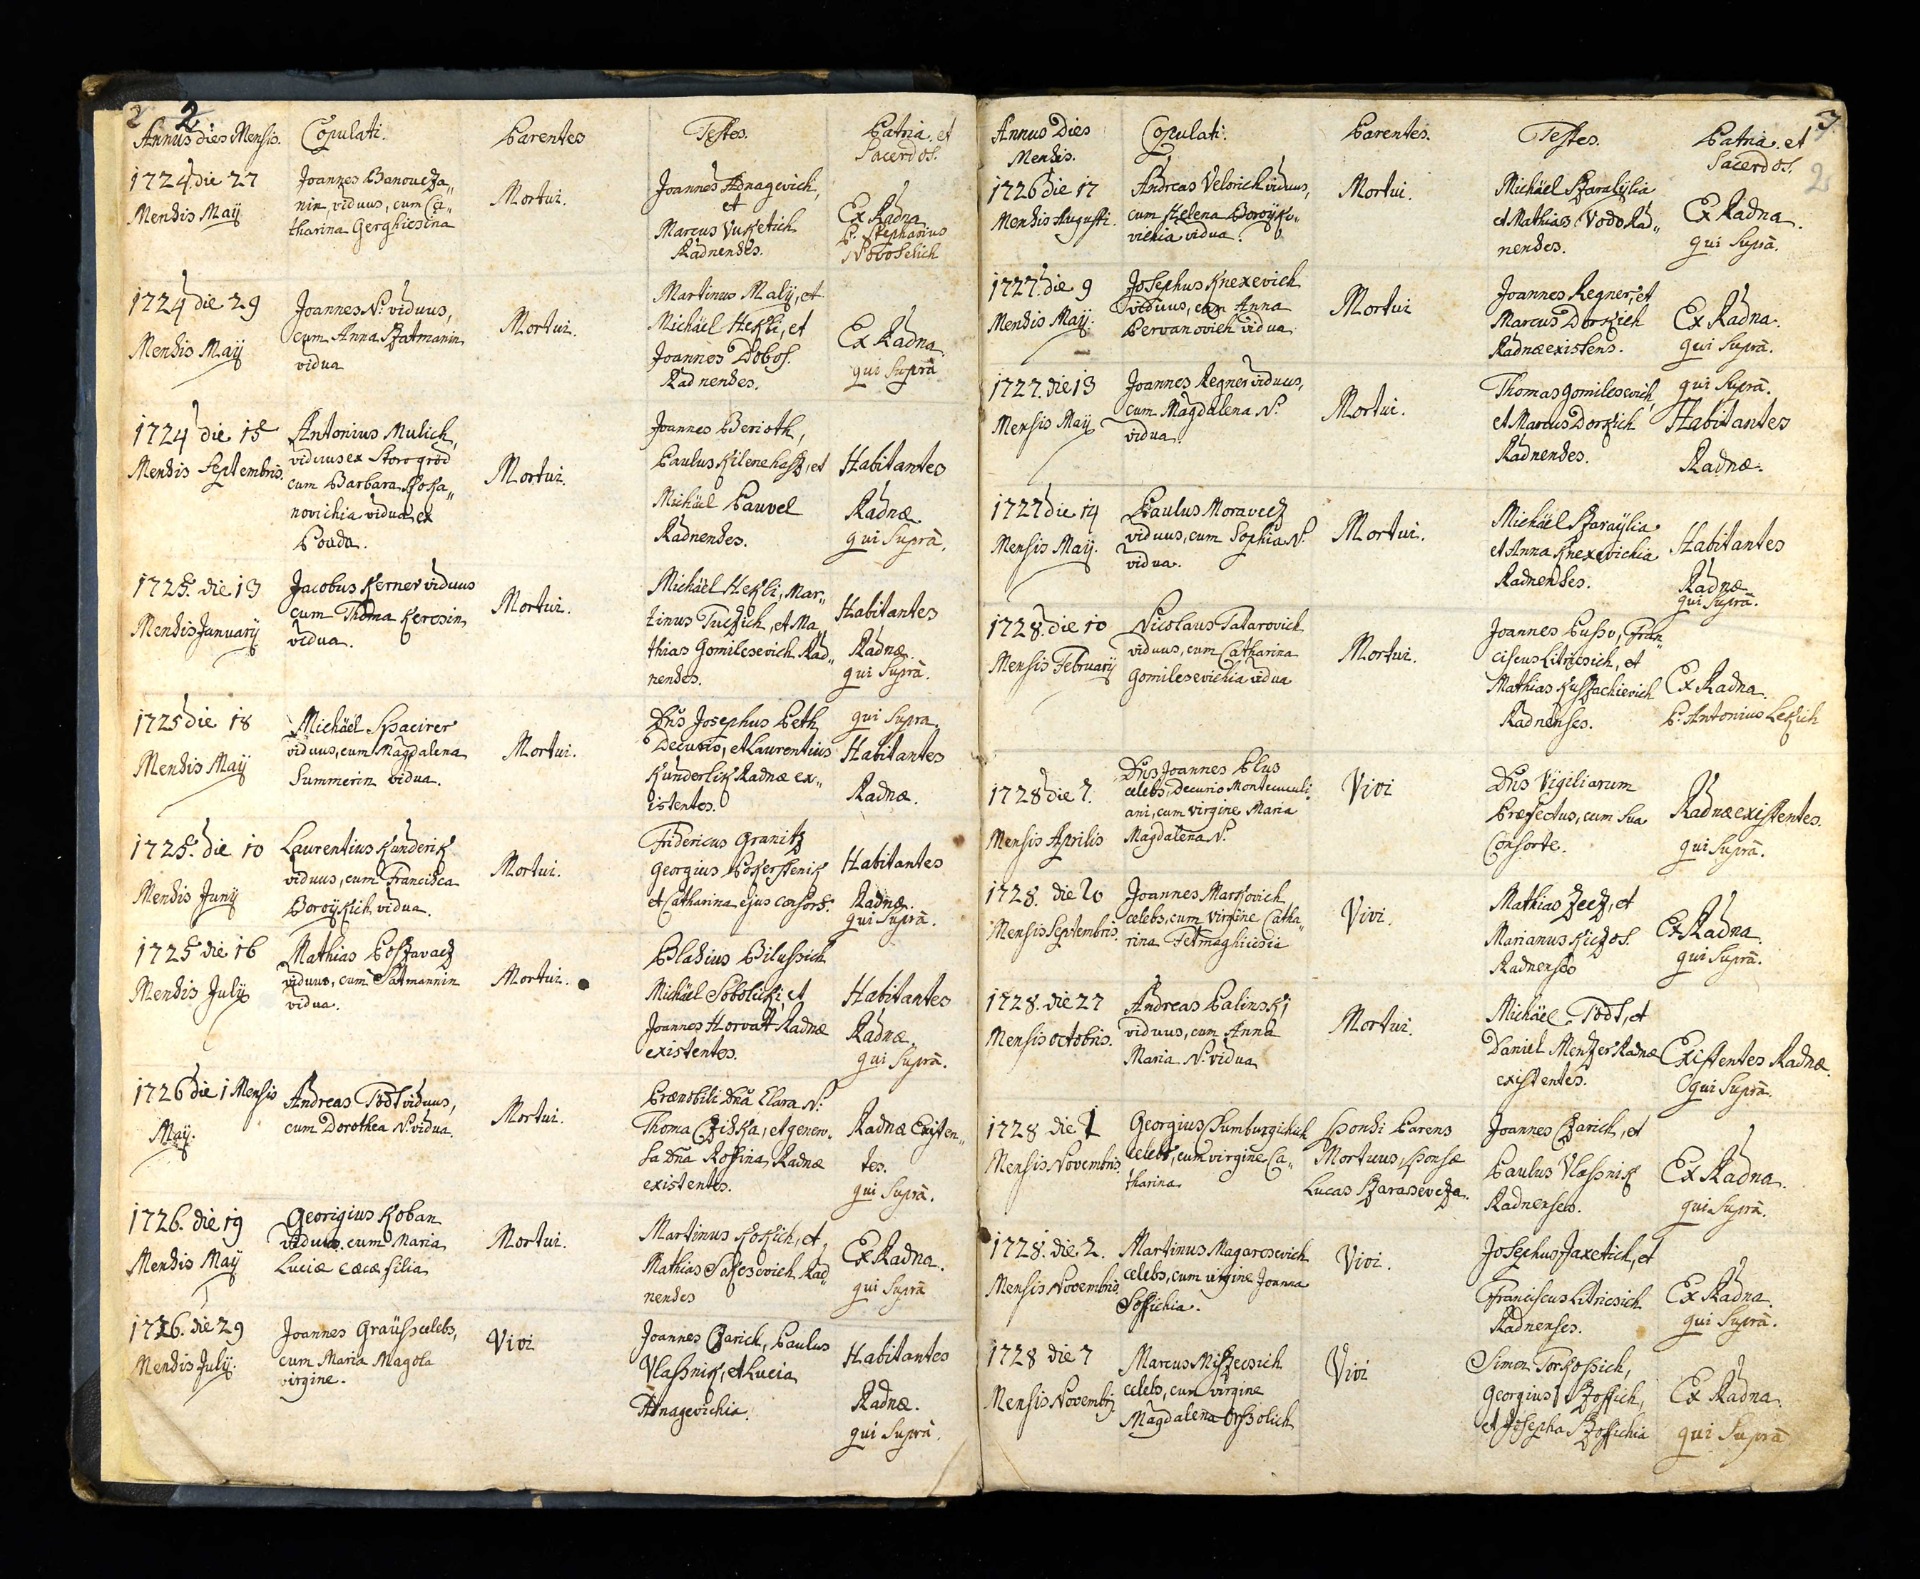 2 2.
Annus dies Mensis. Copulati. Parentes Testes. Patria et
Sacerdos.
1724 die 27
Mensis Maÿ
Joannes Banovcza„
nin, viduus, cum Ca„
tharina Gerghicsina
Mortui.
Joannes Adnagevich,
et
Marcus Vuketich
Radnenses.
Ex Radna
P. Stephanus
Novoselich
1724 die 29
Mensis Maÿ
Joannes N. viduus,
cum Anna Szatmanin
vidua
Mortui.
Martinus Malÿ, et
Michäel Hekli, et
Joannes Dobos.
Radnenses.
Ex Radna
qui Suprà
1724 die 15
Mensis Septembris.
Antonius Mulich,
viduus ex Storogrod
cum Barbara
novichia vidua ex
Mortui.
Joannes Berioth,
Paulus Kilenehasz, et
Michäel Pauvel
Radnenses.
Habitantes
Radnæ
qui Suprà.
1725. die 13
Mensis Januarÿ
Jacobus Kerner viduus
cum Thoma Kerosin
vidua.
Mortui.
Michäel Hekli, Mar„
tinus Tuczich, et Ma
thias Gomilesevich Rad„
nenses.
Habitantes
Radnæ.
qui Suprà.
1725 die 18
Mensis Maÿ
Michäel Spacirer
viduus, cum Magdalena
Summerin vidua.
Mortui.
Dn̄s Josephus Peth
Decuris, et Laurentius
Kunderlik Radnæ ex„
istentes.
qui Supra.
Habitantes
Radnæ.
1725. die 10
Mensis Junÿ
Laurentius Kunderik
viduus, cum Francisca
Boroÿkich vidua.
Mortui.
Fridericus Granitz
Georgius Pokerstenik
et Catharina ejus consors.
Habitantes
Radnæ.
qui Suprà.
1725 die 16
Mensis Julÿ
Mathias Poszavacz
viduus, cum Satmannin
vidua.
Mortui.
Blasius Bilussich
Michäel Sobolicki, et
Joannes Horvatt Radnæ
existentes.
Habitantes
Radnæ.
qui Suprà.
1726 die 1 Mensis
Maÿ.
Andreas Todt viduus,
cum Dorothea N. vidua.
Mortui.
Prænobili Dn̄a Clara N.
Thoma Cziska, et genero„
sa Dn̄a Rossina Radnæ
existentes.
Radnæ Existen„
tes.
qui Suprà.
1726. die 19
Mensis Maÿ
Georigius Koban
viduus. cum Maria
Luciæ cæcæ filia
Mortui.
Martinus Kokich, et,
Mathias Sokcsevich Rad
nenses
Ex Radna.
qui Suprà
1726. die 29
Mensis Julÿ.
Joannes Graüss celebs,
cum Maria Magola
virgine.
Vivi
Joannes Czarich, Paulus
Vlassnik, et Lucia
Adnagevichia.
Habitantes
Radnæ.
qui Suprà.
3.
2
Annus Dies
Mensis.
Copulati. Parentes. Testes. Patria et
Sacerdos.
1726 die 17
Mensis Augusti.
Andreas Velorich viduus,
cum Helena Boroÿko„
vichia vidua.
Mortui.
Michäel Szaraÿlia
et Mathias Vodo Rad„
nenses.
Ex Radna.
qui Suprà.
1727. die 9
Mensis Maÿ.
Josephus Knexevich
viduus, cum Anna
Pervanovich vidua.
Mortui
Joannes Regner, et
Marcus Dorkich
Radnæ existens.
Ex Radna.
qui Suprà.
1727. die 13
Mensis Maÿ
Joannes Regner viduus,
cum Magdalena N.
vidua.
Mortui.
Thomas Gomilesevich,
et Marcus Dorkich
Radnenses.
qui Suprà.
Habitantes
Radnæ.
1727 die 14
Mensis Maÿ.
Paulus Moravecz
viduus, cum Sophia N.
vidua.
Mortui.
Michäel Szaraÿlia
et Anna Knexevichia
Radnenses.
Habitantes
Radnæ
qui Suprà.
1728. die 10
Mensis Februarÿ
Nicolaus Tatarovich
viduus, cum Catharina
Gomilesevichia vidua
Mortui.
Joannes Pusso, Fran„
ciscus Litricsich, et
Mathias Kuszachievich
Radnenses.
Ex Radna.
P. Antonius Lekich
1728 die 7.
Mensis Aprilis
Dn̄s Joannes Plus
celebs, Decurio Montecuculi„
ani, cum virgine Maria
Magdalena N.
Vivi
Dn̄s Vigiliarum
Præfectus, cum Sua
Consorte.
Radnæ existentes.
qui Suprà.
1728. die 20
Mensis Septembris.
Joannes Markovich
celebs, cum virgine Catha„
rina Fetmaghicsia
Vivi.
Mathias Zecz, et
Marianus Kiczos.
Radnenses
Ex Radna.
qui Suprà.
1728. die 27
Mensis octobris.
Andreas Palinski
viduus, cum Anna
Maria N. vidua
Mortui.
Michäel Todt, et
Daniel Menzer Radnæ
existentes.
Existentes Radnæ.
qui Suprà.
1728 die 1
Mensis Novembris
Georgius Chumburgichich
celebs, cum virgine Ca„
tharina
Sponsi Parens
Mortuus, Sponsæ
Lucas Szarasevcza.
Joannes Czarich, et
Paulus Vlassnik
Radnenses.
Ex Radna.
qui Suprà.
1728. die 2.
Mensis Novembris
Martinus Magarcsevich
celebs, cum virgine Joanna
Soffichia.
Vivi.
Josephus Jaxetich, et
Franciscus Litricsich
Radnenses.
Ex Radna.
qui Suprà.
1728 die 7
Mensis Novembris
Marcus Miszecsich
celebs, cum virgine
Magdalena Orssolich
Vivi
Simon Torkossich,
Georgius Szoffich,
et Josepha Szoffichia
Ex Radna.
qui Suprà